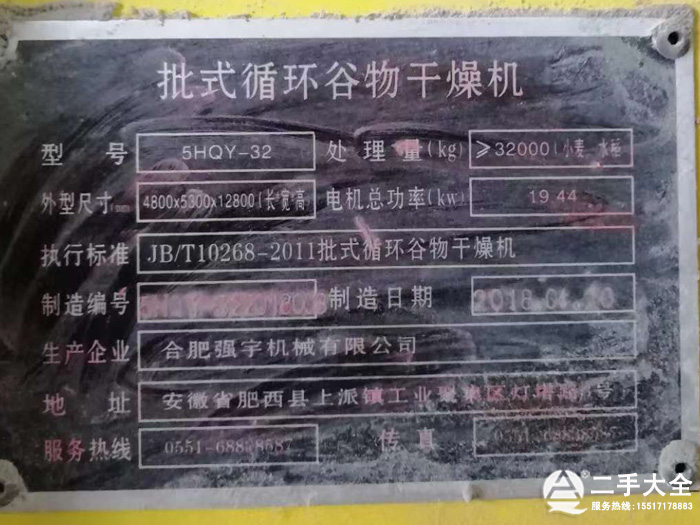 批式循环谷物干燥机
型号 5HQY-32 处理量(kg) ≥32000(小麦、水稻)
外型尺寸(mm) 4800x5300x12800(长宽高) 电机总功率(kw) 19.44
执行标准 JB/T10268-2011批式循环谷物干燥机
制造编号 制造日期
生产企业 合肥强宇机械有限公司
地址 安徽省肥西县上派镇工业聚集区灯塔路 号
服务热线 0551-68838587 传真
二手大全
服务热线:15517178883